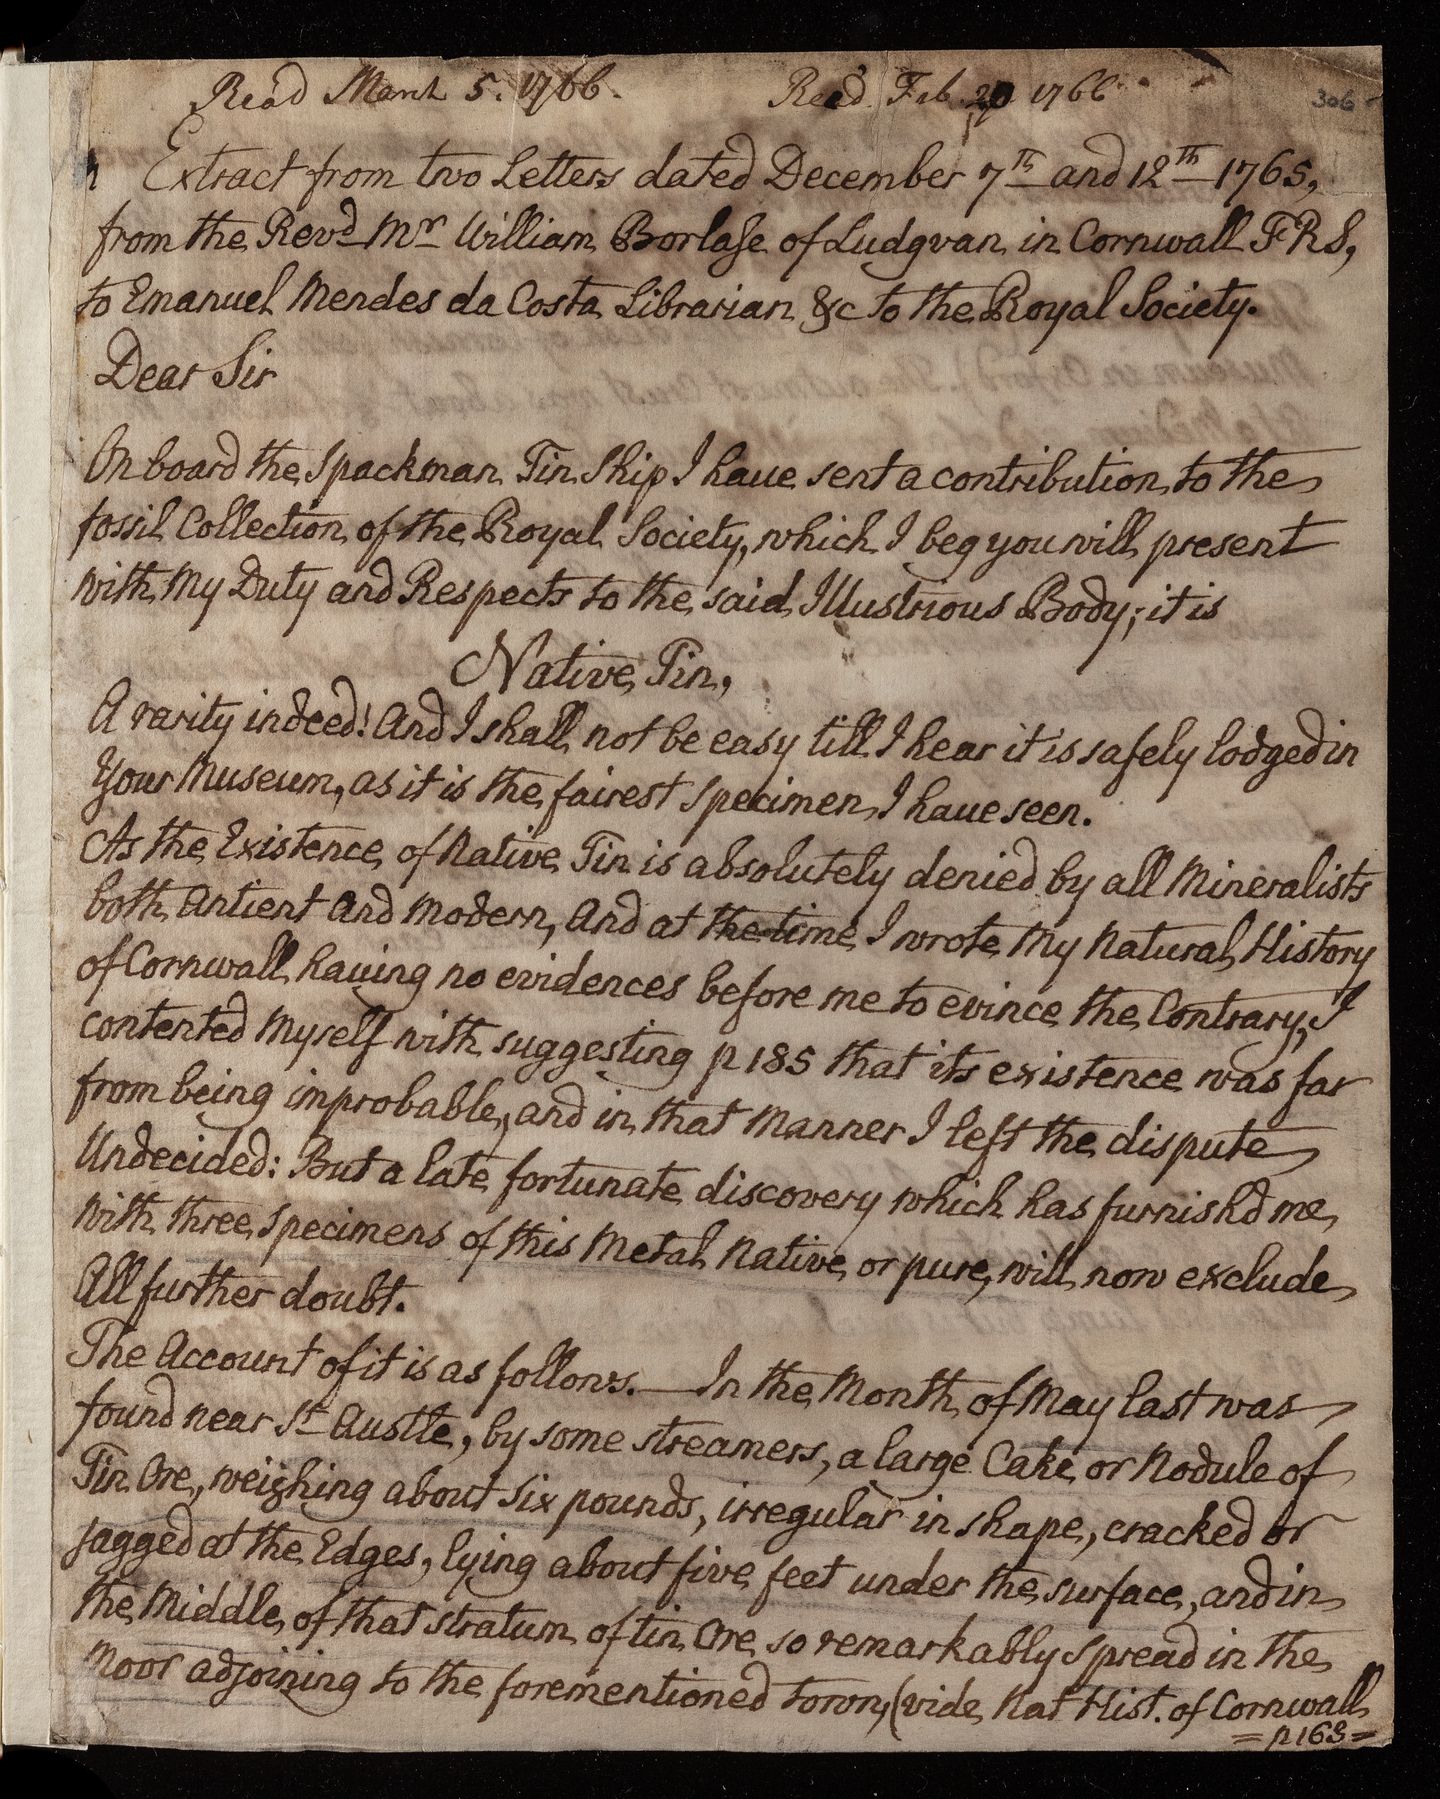 Read March 5. 1766. Read Feb. 20 1766 306
Extract from two Letters dated December 7th and 12th 1765,
from the Revd Mr William Borlase of Ludgvan in Cornwall FRS,
to Emanuel Mendes da Costa Librarian &c to the Royal Society.
Dear Sir
On board the Spackman Tin Ship I have sent a contribution to the
fossil Collection of the Royal Society, which I beg you will present
with my Duty and Respects to the said Illustrious Body; it is
Native Tin,
A rarity indeed! And I shall not be easy till I hear it is safely lodged in
Your Museum, as it is the fairest specimen I have seen.
As the Existence of Native Tin is absolutely denied by all Mineralists
both Antient and Modern, And at the time I wrote my Natural History
of Cornwall having no evidences before me to evince the Contrary, I
contented myself with suggesting p 185 that its existence was far
from being improbable, and in that Manner I left the dispute
Undecided: But a late fortunate discovery which has furnishd me
with three specimens of this Metal Native or pure, will now exclude
All further doubt.
The Account of it is as follows.—In the Month of May last was
found near St Austle, by some streamers, a large Cake or Nodule of
Tin Ore, weighing about six pounds, irregular in shape, cracked or
Jagged at the Edges, lying about five feet under the surface, and in
the Middle of that stratum of tin Ore so remarkably spread in the
Moor adjoining to the forementioned town, (vide Nat Hist. of Cornwall
= p 163 =